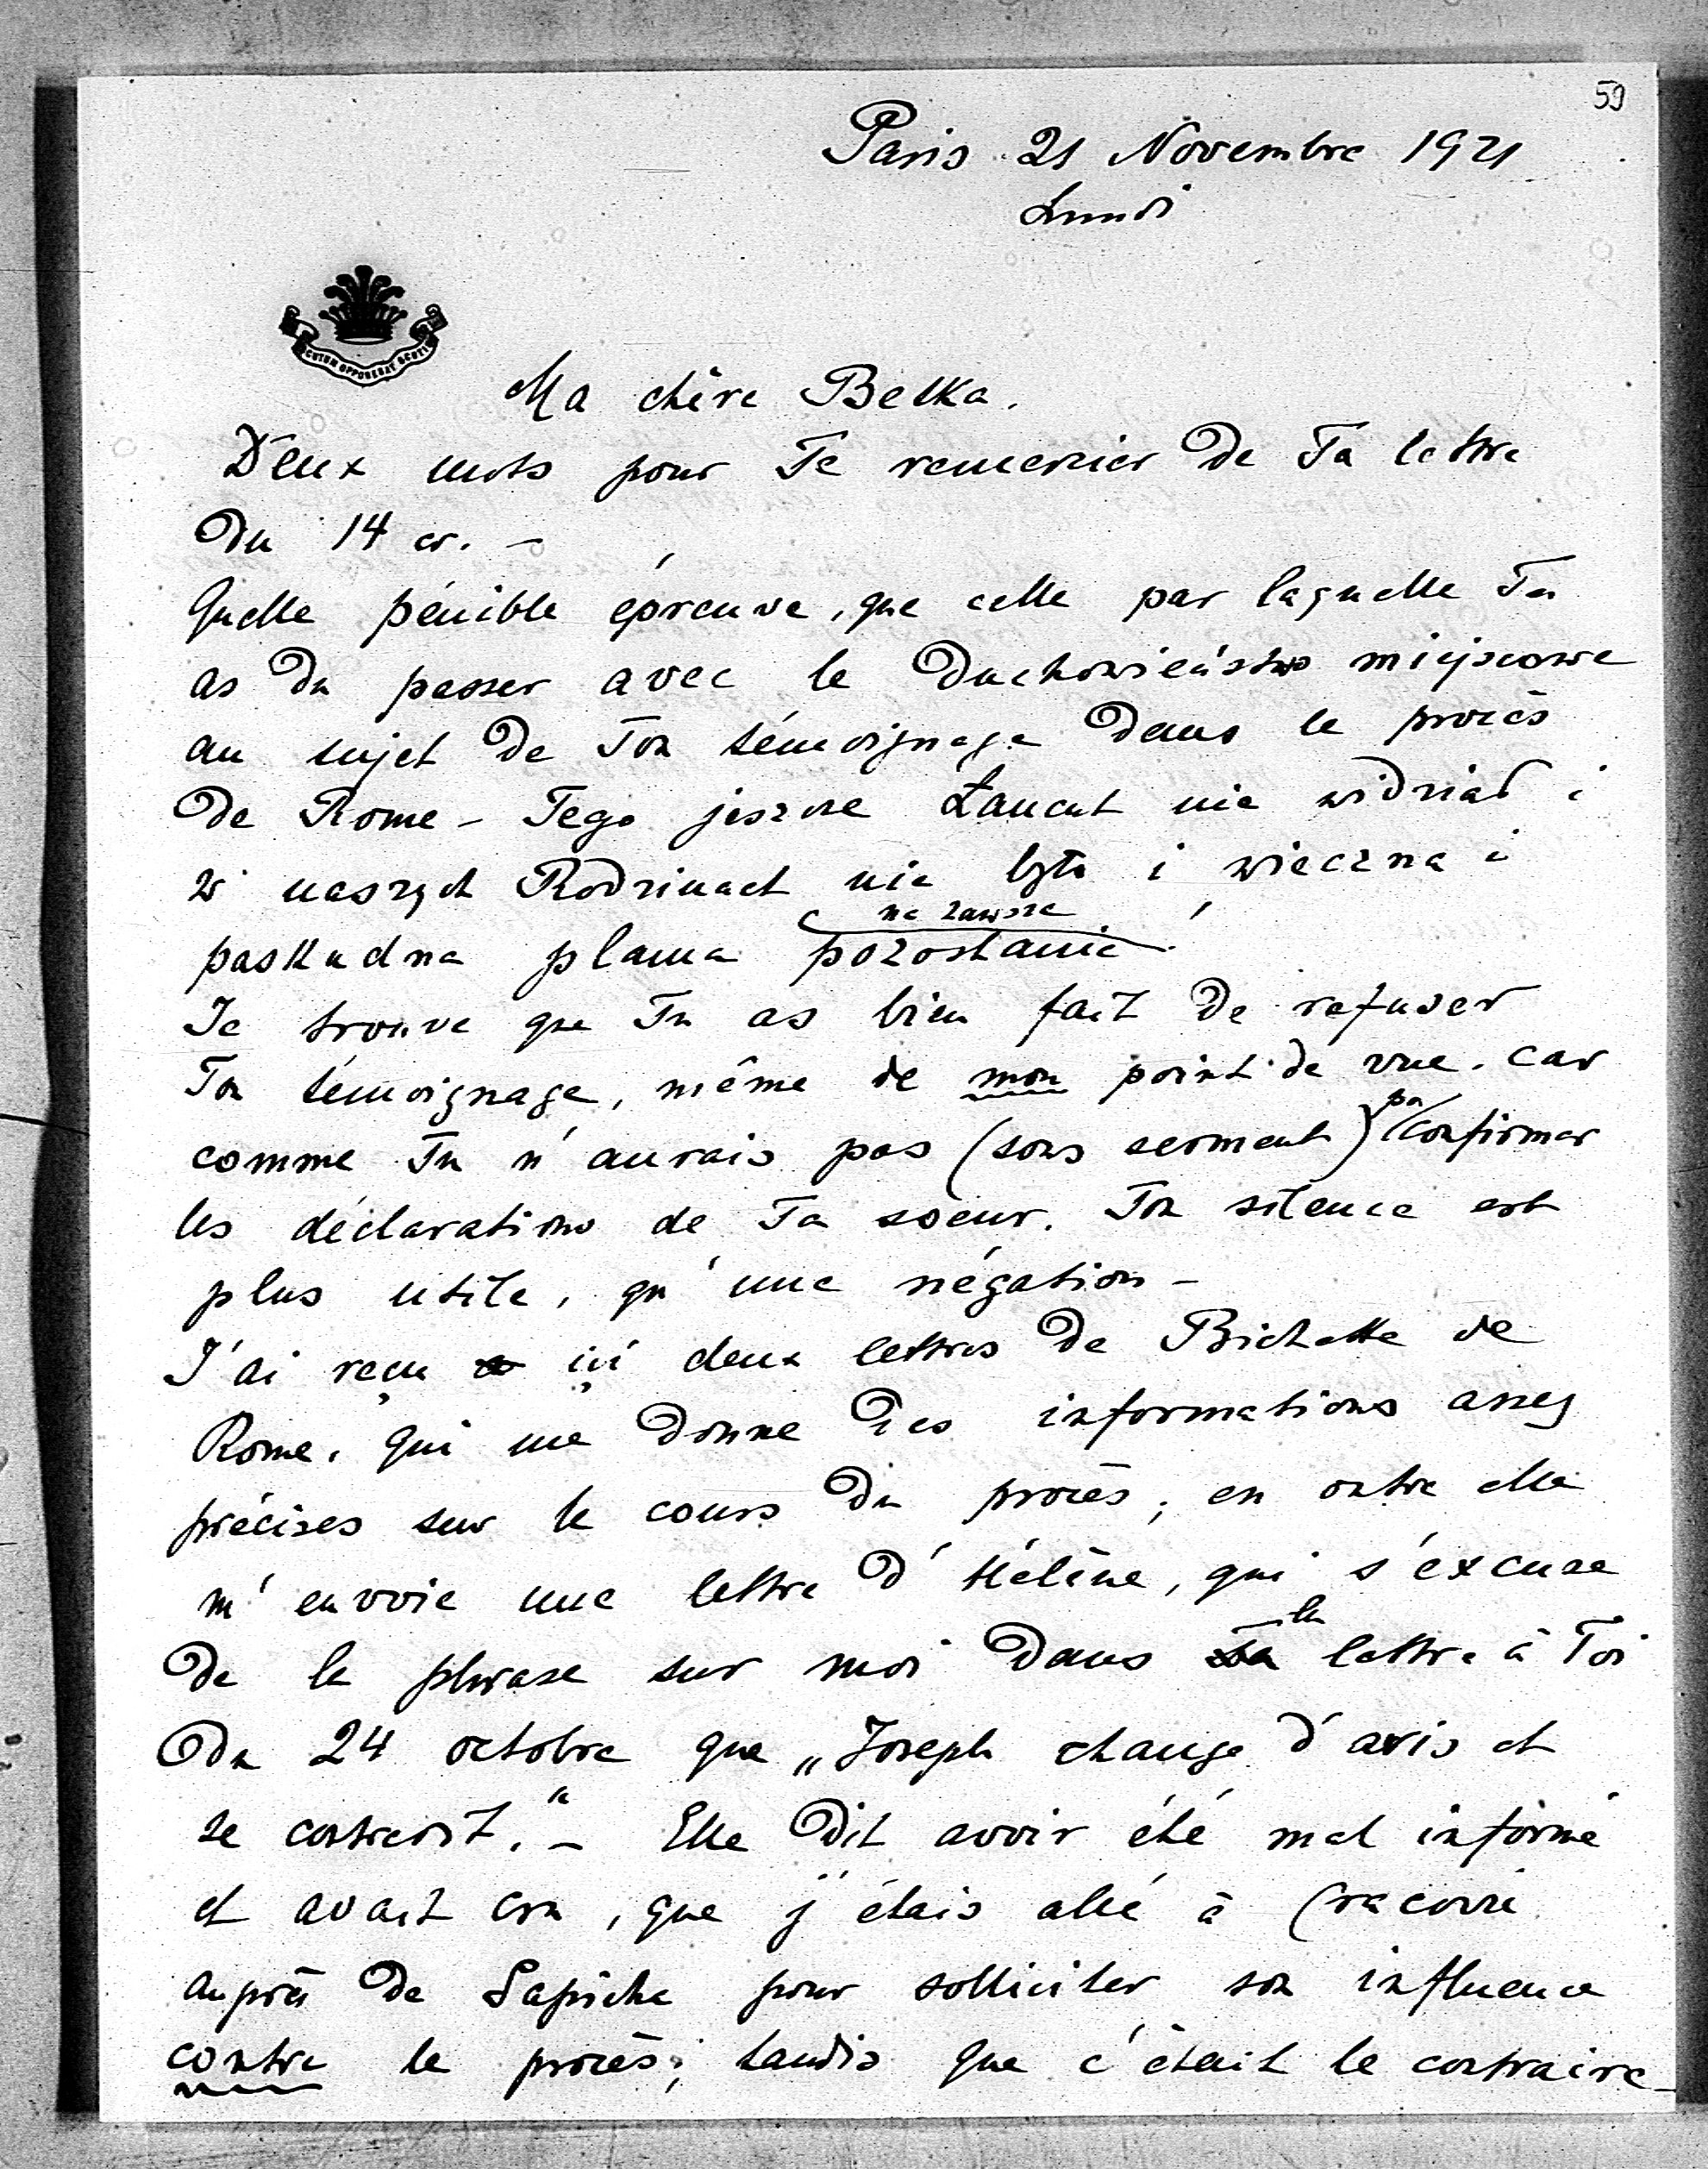 59
Paris 21 Novembre 1921
Lundi
SCUTUM OPPONEBAT SCUTIS
Ma chère Betka.
Deux mots pour Te remercier de Ta lettre
du 14 cr. –
Quelle pénible épreuve, que celle par laquelle Tu
as du passer avec le Duchowieństwo miejscowe
au sujet de Ton témoignage dans le procès
de Rome – Tego jeszcze Łańcut nie widział i
w naszych Rodzinach nie było i wieczna i
paskudna plama na zawsze pozostanie!
Je trouve que Tu as bien fait de refuser
Ton témoignage, même de mon point de vue. Car
comme Tu n'aurais pas (sous serment) pu confirmer
les déclarations de Ta soeur. Ton silence est
plus utile, qu'une négation –
J'ai reçu ici deux lettres de Bichette de
Rome, qui me donne des informations assez
précises sur le cours du procès; en outre elle
m'envoie une lettre d'Hélène, qui s'excuse
de la phrase sur moi dans la lettre à Toi
du 24 octobre que „Joseph change d'avis et
se contredit." – Elle dit avoir été mal informé
et avait cru, que j'étais allé à Cracovie
auprès de Sapieha pour solliciter son influence
contre le procès; tandis que c'était le contraire –